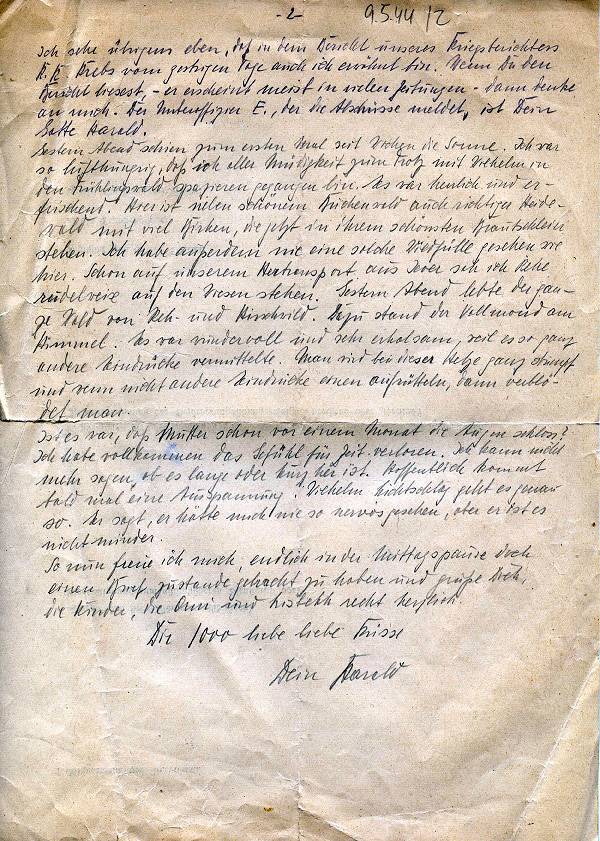 -2- 9.5.44/2
Ich sehe übrigens eben, daß in dem Bericht unseres Kriegsberichters
Krebs vom gestrigen Tage auch ich erwähnt bin. Wenn Du den
Bericht liesest, - er erscheint meist in vielen Zeitungen - dann denke
an mich. Der Unteroffizier E., der die Abschüsse meldet, ist Dein
Gatte Harald.
Gestern Abend schien zum ersten Mal seit Wochen die Sonne. Ich war
so lufthungrig, daß ich aller Müdigkeit zum Trotz mit Wilhelm in
den Frühlingswald spazieren gegangen bin. Es war herrlich und er-
frischend. Hier ist neben schönem Buchenwald auch richtiger Heide-
wald mit viel Birken, die jetzt in ihrem schönsten Brautschleier
stehen. Ich habe außerdem nie eine solche Wildfülle gesehen wie
hier. Schon auf unserem Hertransport aus Jever sah ich Rehe
rudelweise auf den Wiesen stehen. Gestern Abend lebte der gan-
ze Wald von Reh- und Hirschwild. Dazu stand der Vollmond am
Himmel. Es war wundervoll und sehr erholsam, weil es so ganz
andere Eindrücke vermittelte. Man wird bei dieser Hetze ganz stumpf
und wenn nicht andere Eindrücke einen aufrütteln, dann verblö-
det man.
Ist es wahr, daß Mutter schon vor einem Monat die Augen schloss?
Ich habe vollkommen das Gefühl für Zeit verloren. Ich kann nicht
mehr sagen, ob es lange oder kurz her ist. Hoffentlich kommt
bald mal eine Ausspannung. Wilhelm geht es genau
so. Er sagt, er hätte mich nie so nervös gesehen, aber er ist es
nicht minder.
So nun freue ich mich, endlich in der Mittagspause doch
einen Brief zustande gebracht zu haben und grüße Dich,
die Kinder, die Omi und Lisbeth recht herzlich.
Dir 1000 liebe liebe Küsse
Dein Harald